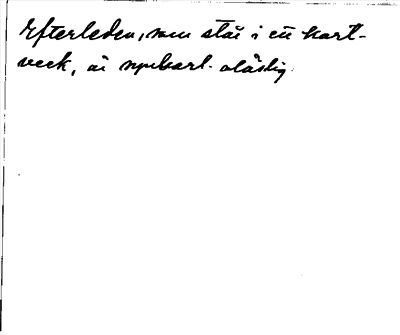 Efterleden, som står i ett kart-
veck, är uppenbarl. oläslig.